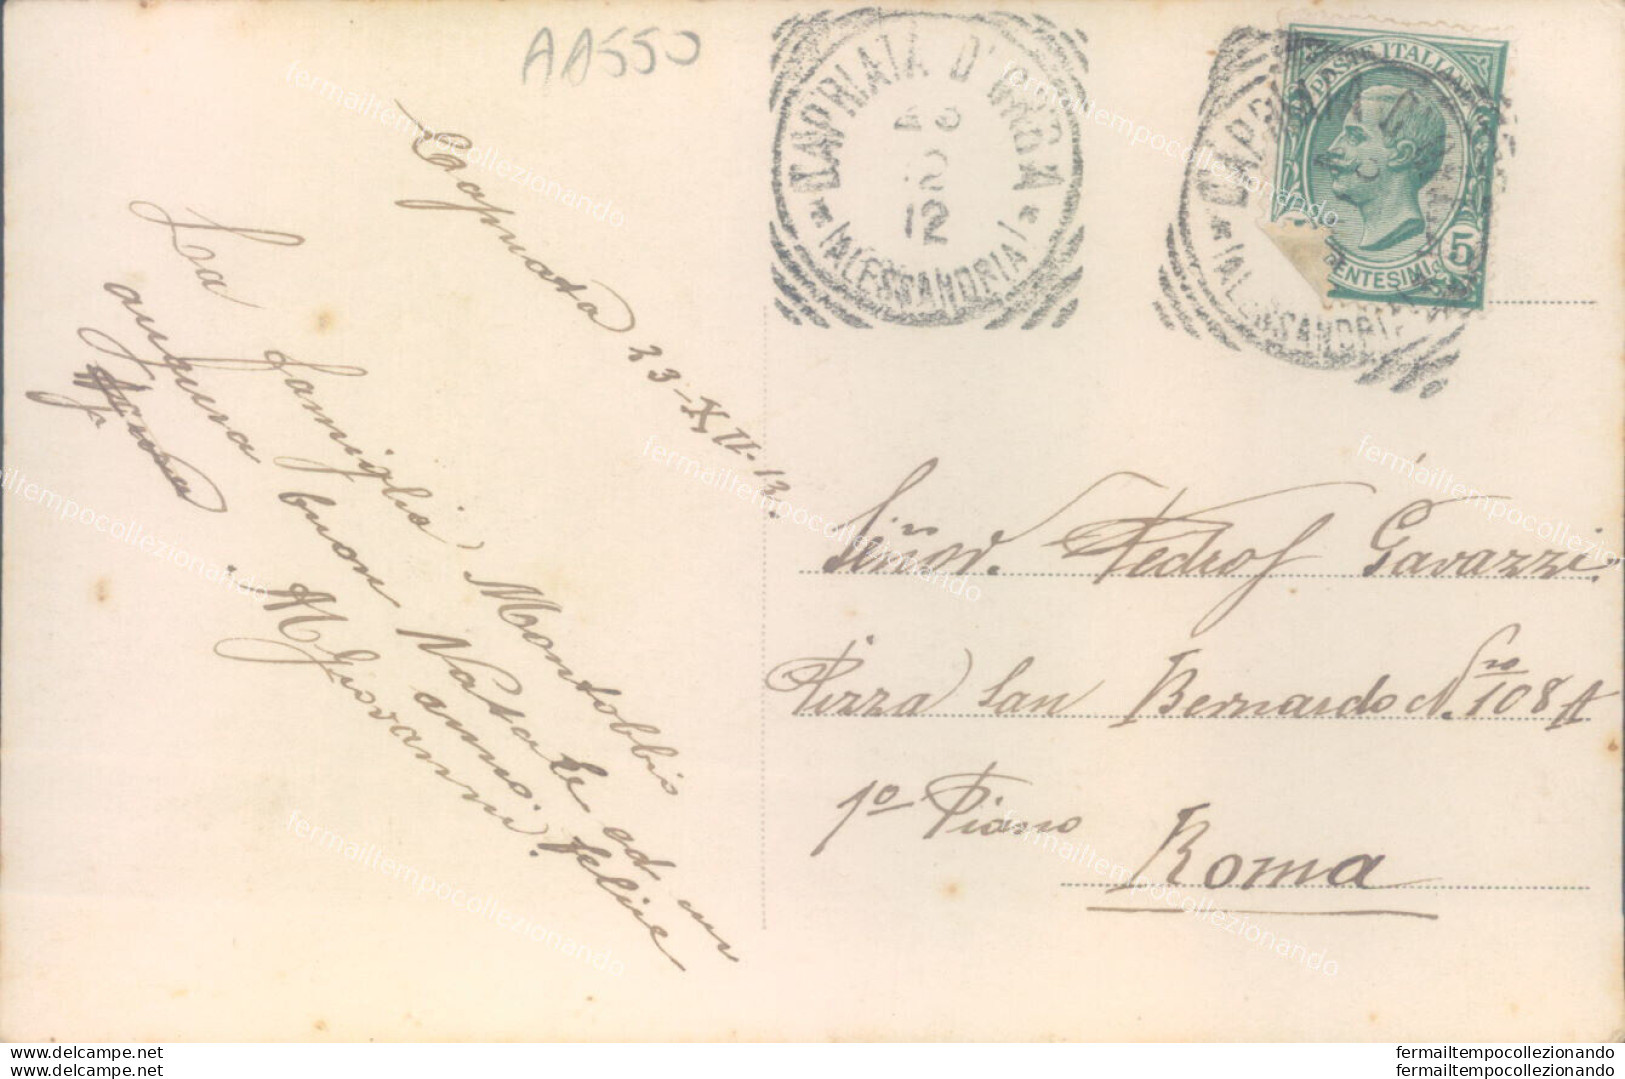 AA550
CAPRIATA D'ORBA
23
12
12
(ALESSANDRIA)
POSTE ITALIANE
CENTESIMI 5
CAPRIATA D'ORBA
(ALESSANDRIA)
Capriata 23-XII-12.
La famiglia Montobbio
augura buon Natale ed un
felice
anno.
M Giovanni.
Señor. Pedro Gavazzi
Pizza San Bernardo N.ro 108 A
1º Piano
Roma
fermailtempocollezionando
www.delcampe.net
www.delcampe.net
fermailtempocollezionando
fermailtempocollezionando